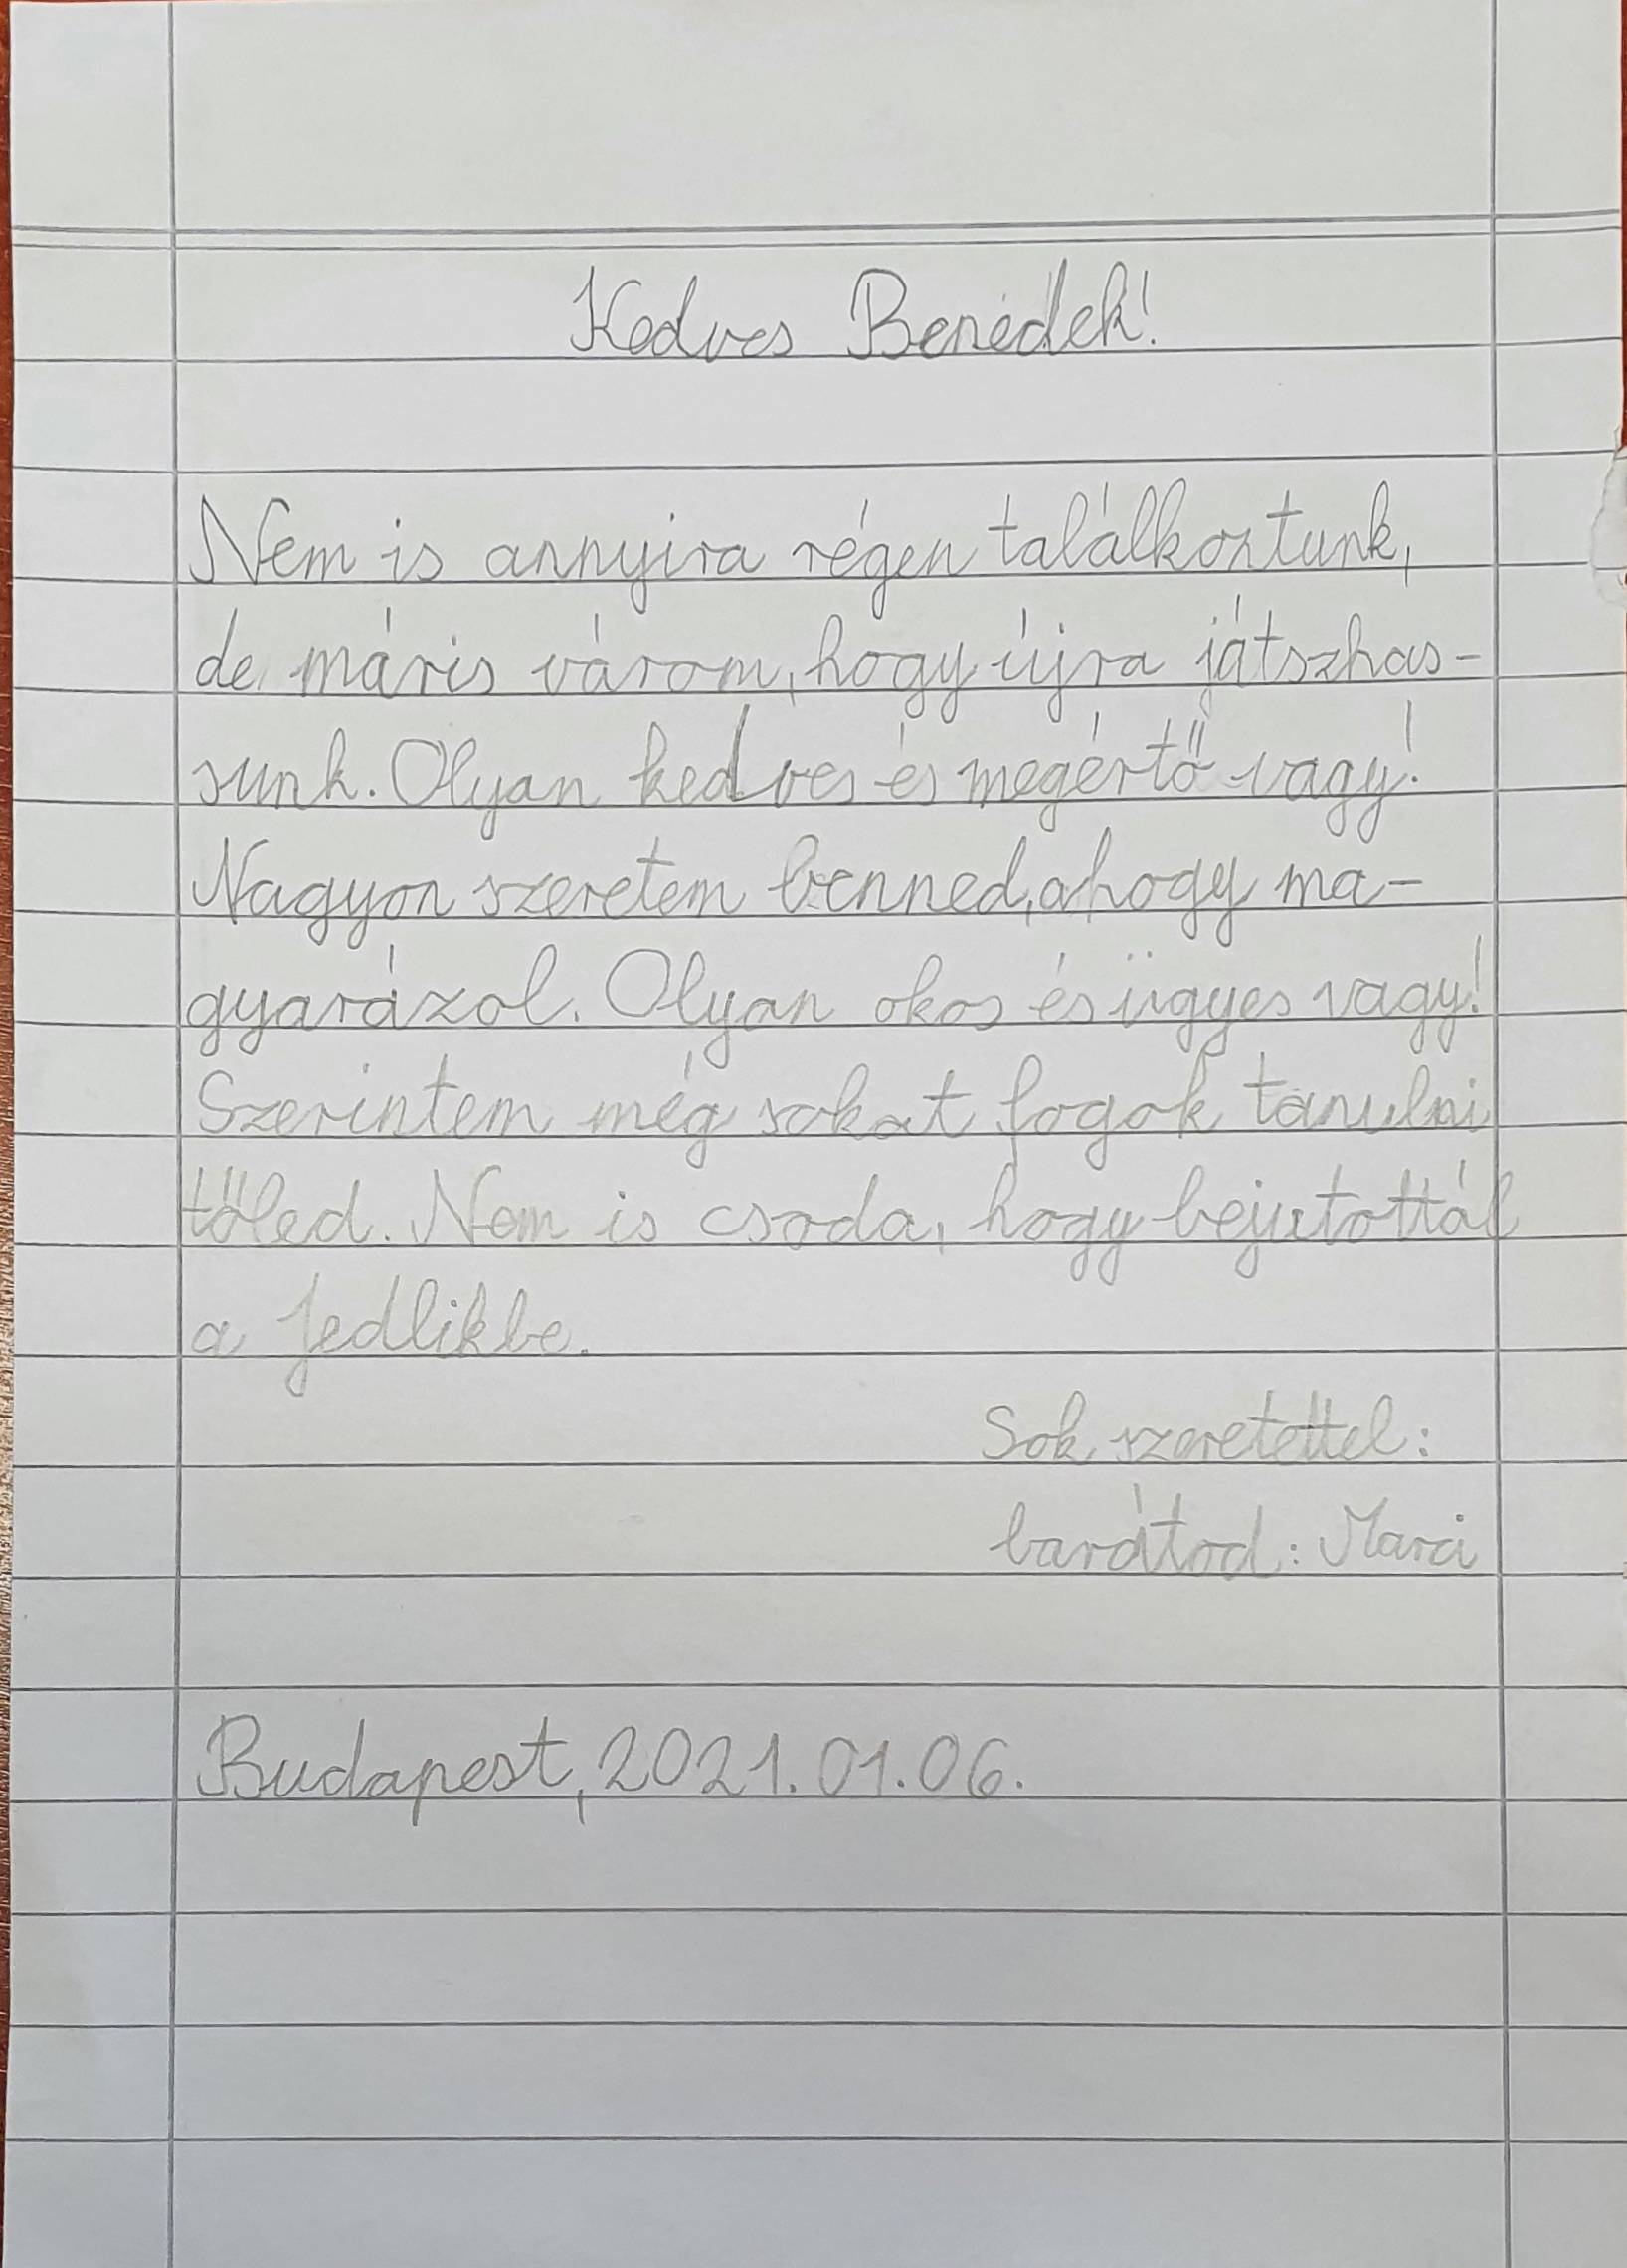 Kedves Benedek!
Nem is annyira régen találkoztunk,
de máris várom, hogy újra játszhas-
sunk. Olyan kedves és megértő vagy!
Nagyon szeretem benned, ahogy ma-
gyarázol. Olyan okos és ügyes vagy!
Szerintem még sokat fogok tanulni
tőled. Nem is csoda, hogy bejutottál
a Jedlikbe.
Sok szeretettel:
barátod: Marci
Budapest, 2021.01.06.